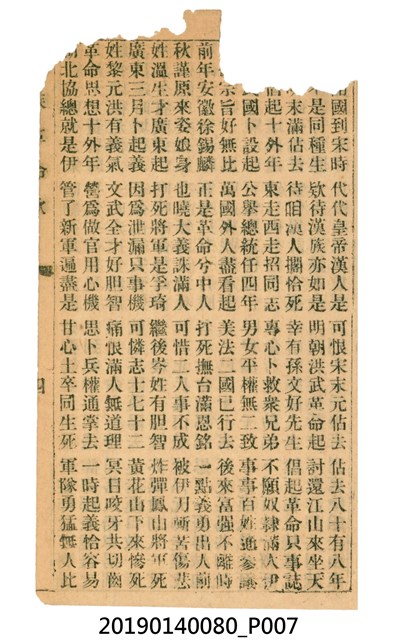 國到宋時 代代皇帝漢人是 可恨宋末元佔去 佔去八十有八年
是同種生 欵待漢族亦如是 明朝洪武革命起 討還江山來坐天
末滿佔去 待咱漢人擱恰死 幸有孫文好先生 倡起革命只事誌
倡起十外年 東走西走招同志 專心卜救衆兄弟 不願奴隸滿人伊
國卜設起 公舉總統任四年 男女平權無二致 事事百姓進參議
宗旨好無比 萬國外人盡看起 美法二國已行去 後來富强不離時
前年安徽徐錫麟 正是革命兮中人 打死撫台滿恩銘 一點義勇出人前
秋謹原來姿娘身 也曉大義誅滿人 可惜二人事不成 被伊刀斬苦傷悲
姓溫生才廣東起 打死將軍是孚琦 繼後岑姓有胆智 炸彈鳳山將軍死
廣東三月卜起義 因爲泄漏只事機 可憐志士七十二 黃花山下來慘死
姓黎元洪有義氣 文武全才好胆智 痛恨滿人無道理 冥日咬牙共切齒
革命思想十外年 營爲做官用心機 思卜兵權通掌去 一時起義恰容易
北協總就是伊 管了新軍逼盡是 甘心士卒同生死 軍隊勇猛無人比
四
20190140080_P007